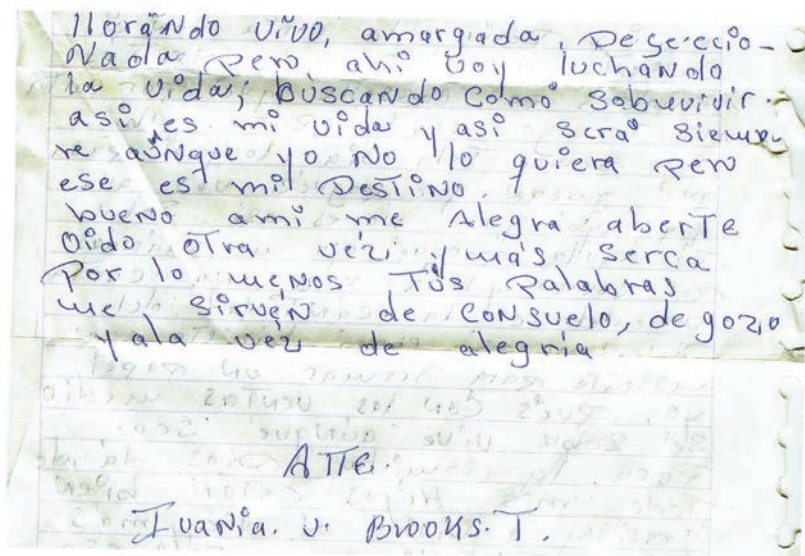 llorando vivo, amargada, Deseccio-
Nada pero ahi voy luchando
la vida; buscando como sobrevivir.
asi es mi vida y asi será siemp
re aunque yo no lo quiera pero
ese es mi Destino.
bueno ami me Alegra aberte
oido otra vez y más serca
Por lo menos Tus palabras
me sirven de consuelo, de gozo
y ala vez de alegria
ATTE.
Ivania. v. Brooks. T.